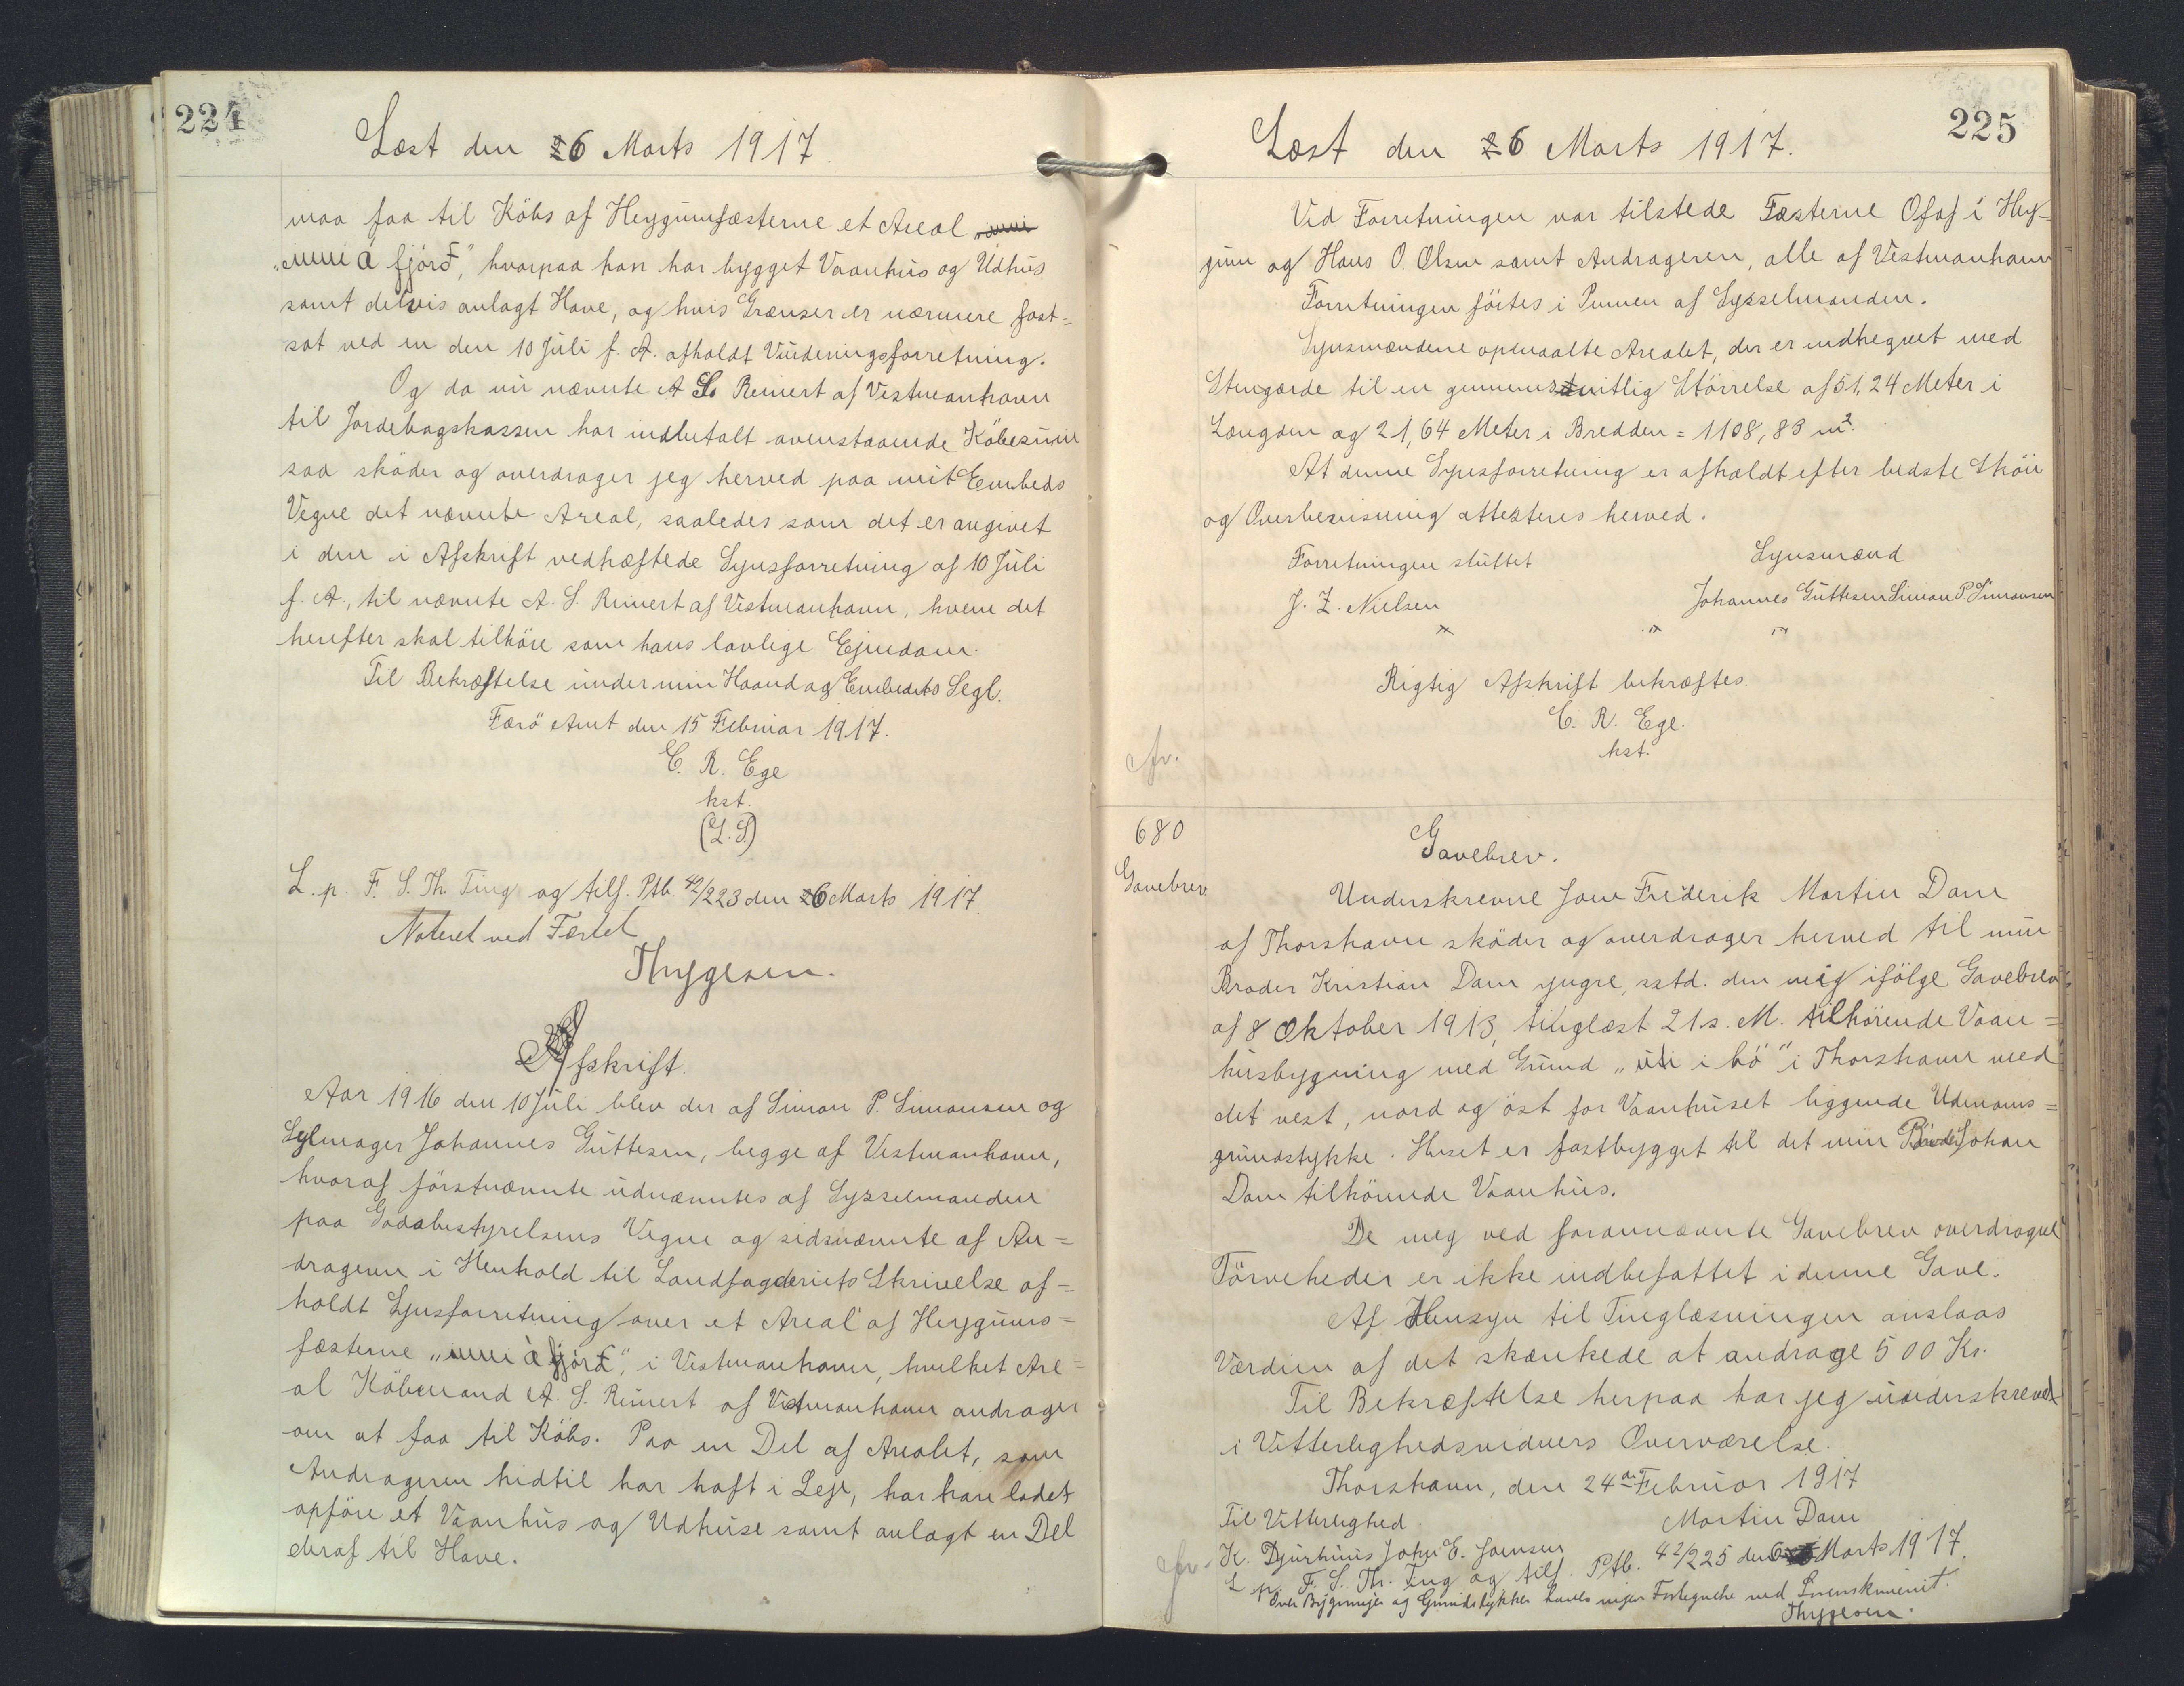 224
Læst den 26 Marts 1917.
maa faa til Köbs af Heygumfæsterne et Areal inni
„inni á fjörd", hvorpaa han har bygget Vaanhus og Udhus
samt delvis anlagt Have, og hvis Grænser er nærmere fast=
sat ved en den 10 Juli f. A. afholdt Vurderingsforretning.
Og da nu nævnte A. S. Reinert af Vestmanhavn
til Jordebogskassen har indbetalt ovenstaaende Köbesum
saa sköder og overdrager jeg herved paa mit Embeds
Vegne det nævnte Areal, saaledes som det er angivet
i den i Afskrift vedhæftede Synsforretning af 10 Juli
f. A., til nævnte A. S. Reinert af Vestmanhavn, hvem det
herefter skal tilhöre som hans lovlige Ejendom.
Til Bekræftelse under min Haand og Embedets Segl.
Færö Amt den 15 Februar 1917.
C. R. Ege
kst.
(L.S)
L. p. F. S. Th. Ting og tilf. Ptb. 42/223 den 26 Marts 1917.
Noteret ved Fæstet
Thygesen.
Afskrift.
Aar 1916 den 10 Juli blev der af Simon P. Simonsen og
Sejlmager Johannes Guttesen, begge af Vestmanhavn,
hvoraf förstnævnte udnævntes af Sysselmanden
paa Godsbestyrelsens Vegne og sidsnævnte af An=
drageren i Henhold til Landfogderiets Skrivelse af=
holdt Synsforretning over et Areal af Heygums=
fæsterne „inni á fjörd", i Vestmanhavn, hvilket Are=
al Köbmand A. S. Reinert af Vestmanhavn andrager
om at faa til Köbs. Paa en Del af Arealet, som
Andrageren hidtil har haft i Leje, har han ladet
opföre et Vaanhus og Udhuse samt anlagt en Del
deraf til Have.
225
Læst den 26 Marts 1917.
Ved Forretningen var tilstede Fæsterne Ofaf í Hey=
gum og Hans O. Olsen samt Andrageren, alle af Vestmanhavn
Forretningen förtes i Pennen af Sysselmanden.
Synsmændene opmaalte Arealet, der er indhegnet med
Stengærde til en gennemsnitlig Störrelse af 51,24 Meter i
Længden og 21,64 Meter i Bredden = 1108,83 m².
At denne Synsforretning er afholdt efter bedste Skön
og Overbevisning attesteres herved.
Forretningen sluttet
Synsmænd
J. Z. Nielsen
Johannes Guttesen Simon P. Simonsen
Rigtig Afskrift bekræftes.
C. R. Ege.
kst.
fv.
680
Gavebrev
Gavebrev.
Underskrevne Jens Frederik Martin Dam
af Thorshavn sköder og overdrager herved til min
Broder Kristian Dam yngre, sstd. den mig ifölge Gavebrev
af 8 Oktober 1913, tinglæst 21 s. M. tilhörende Vaan=
husbygning med Grund „úti i bö" i Thorshavn med
det vest, nord og öst for Vaanhuset liggende Udmarks=
grundstykke. Huset er fastbygget til det min Broder Johan
Dam tilhörende Vaanhus.
De mig ved forannævnte Gavebrev overdragne
Törveheder er ikke indbefattet i denne Gave.
Af Hensyn til Tinglæsningen anslaas
Værdien af det skænkede at andrage 500 Kr.
Til Bekræftelse herpaa har jeg underskrevet
i Vitterlighedsvidners Overværelse.
Thorshavn, den 24de Februar 1917
Til Vitterlighed
Martin Dam
K. Djurhuus John E. Joensen
fv. L. p. F. S. Th. Ting og tilf. Ptb. 42/225 den 6 Marts 1917.
Over Bygninger og Grundstykker haves ingen Fortegnelse ved
Thygesen.